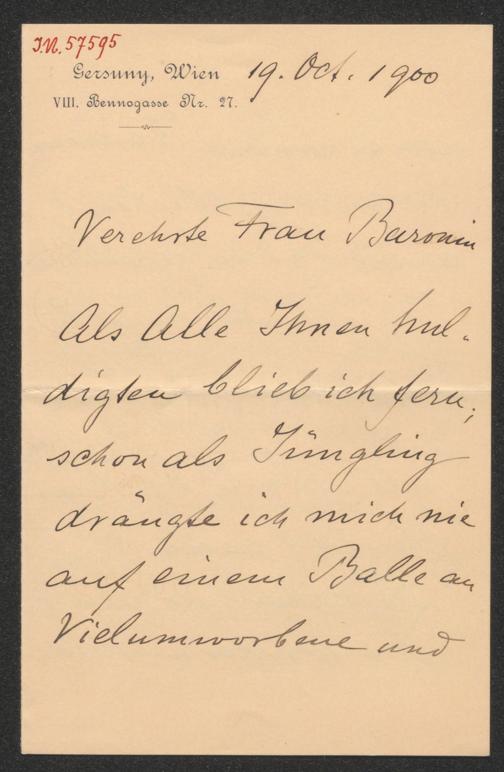 J.N. 57595
Gersuny, Wien
VIII. Bennogasse Nr. 27.
19. Oct. 1900
Verehrte Frau Baronin
Als Alle Ihnen hul-
digten blieb ich fern;
schon als Jüngling
drängte ich mich nie
auf einem Balle an
Vielumworbene und